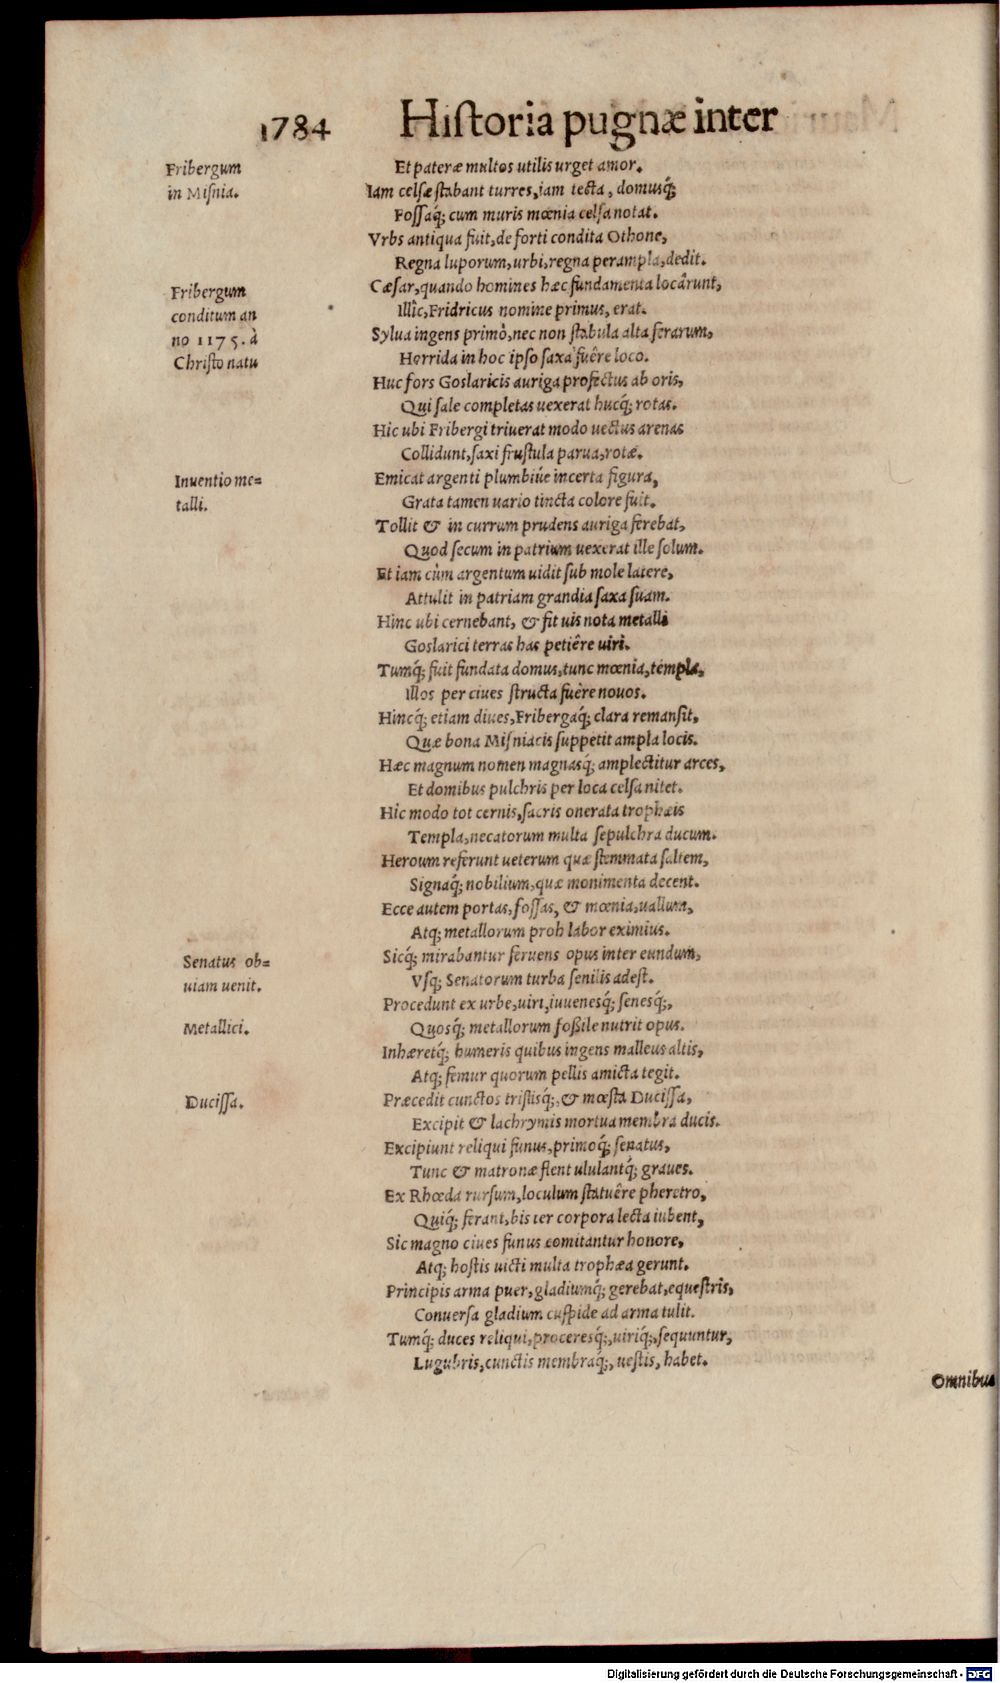 1784 Hiſtoria pugnæ inter
Fribergum
in Miſnia.
Et pateræ multos utilis urget amor.
Iam celſæ ſtabant turres, iam tecta, domusq́;
Foſſaq́; cum muris mœnia celſa notat.
Vrbs antiqua fuit, de forti condita Othone,
Regna luporum, urbi, regna perampla, dedit.
Fribergum
conditum an
no 1175. à
Chriſto natu
Cæſar, quando homines hæc fundamenta locârunt,
Illîc, Fridricus nomine primus, erat.
Sylua ingens primò, nec non ſtabula alta ferarum,
Horrida in hoc ipſo ſaxa fuêre loco.
Huc fors Goslaricis auriga profectus ab oris,
Qui ſale completas uexerat hucq́; rotas.
Hic ubi Fribergi triuerat modo uectus arenas
Collidunt, ſaxi fruſtula parua, rotæ.
Inuentio me=
talli.
Emicat argenti plumbiúe incerta figura,
Grata tamen uario tincta colore fuit.
Tollit & in currum prudens auriga ferebat,
Quod ſecum in patrium uexerat ille ſolum.
Et iam cùm argentum uidit ſub mole latere,
Attulit in patriam grandia ſaxa ſuam.
Hinc ubi cernebant, & fit uis nota metalli
Goslarici terras has petiêre uiri.
Tumq́; fuit fundata domus, tunc mœnia, templa,
Illos per ciues ſtructa fuêre nouos.
Hincq́; etiam diues, Fribergaq́; clara remanſit,
Quæ bona Miſniacis ſuppetit ampla locis.
Hæc magnum nomen magnasq́; amplectitur arces,
Et domibus pulchris per loca celſa nitet.
Hic modo tot cernis, ſacris onerata trophæis
Templa, necatorum multa ſepulchra ducum.
Heroum referunt ueterum quæ ſtemmata ſaltem,
Signaq́; nobilium, quæ monimenta decent.
Ecce autem portas, foſſas, & mœnia, uallum,
Atq; metallorum proh labor eximius.
Senatus ob=
uiam uenit.
Sicq́; mirabantur feruens opus inter eundum,
Vſq; Senatorum turba ſenilis adeſt.
Procedunt ex urbe, uiri, iuuenesq́; ſenesq́;,
Metallici.
Quosq́; metallorum foßile nutrit opus.
Inhæretq́; humeris quibus ingens malleus altis,
Atq; femur quorum pellis amicta tegit.
Duciſſa.
Præcedit cunctos triſtisq́;, & mœſta Duciſſa,
Excipit & lachrymis mortua membra ducis.
Excipiunt reliqui funus, primoq́; ſenatus,
Tunc & matronæ flent ululantq́; graues.
Ex Rhœda rurſum, loculum ſtatuêre pheretro,
Quiq́; ferant, bis ter corpora lecta iubent,
Sic magno ciues funus comitantur honore,
Atq; hoſtis uicti multa trophæa gerunt.
Principis arma puer, gladiumq́; gerebat, equeſtris,
Conuerſa gladium cuſpide ad arma tulit.
Tumq́; duces reliqui, proceresq́;, uiriq́;, ſequuntur,
Lugubris, cunctis membraq́;, ueſtis, habet.
Omnibus
Digitalisierung gefördert durch die Deutsche Forschungsgemeinschaft - DFG